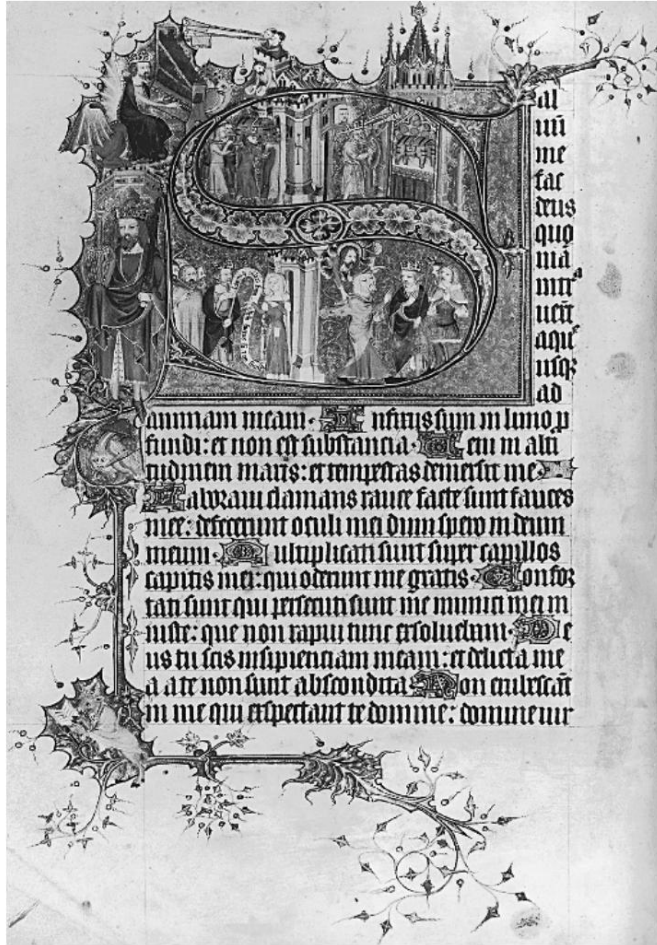 S al
uū
me
fac
deus
quo
nia
intra
uerūt
aque
usqȝ
ad
animam meam. Infixus sum in limo p
fundi: et non est substancia. Ueni in alti
tudinem maris: et tempestas demersit me
Laboraui clamans rauce facte sunt fauces
mee: defecerunt oculi mei dum spero in deum
meum. Multiplicati sunt super capillos
capitis mei: qui oderunt me gratis. Confor
tati sunt qui persecuti sunt me inimici mei in
iuste: que non rapui tunc exsoluebam. De
us tu scis insipienciam meam: et delicta me
a a te non sunt abscondita. Non erubescāt
in me qui exspectant te domine: domine uir